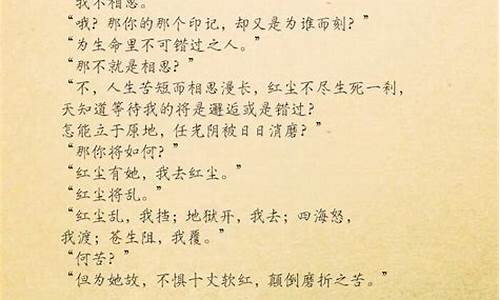 “我不相思。”
“哦？那你的那个印记，却又是为谁而刻？”
“为生命里不可错过之人。”
“那不就是相思？”
“不，人生苦短而相思漫长，红尘不尽生死一刹，
天知道等待我的将是邂逅或是错过？
怎能立于原地，任光阴被日日消磨？”
“那你将如何？”
“红尘有她，我去红尘。”
“红尘将乱。”
“红尘乱，我挡；地狱开，我去；四海怒，
我渡；苍生阻，我覆。”
“何苦？”
“但为她故，不惧十丈软红，颠倒磨折之苦。”